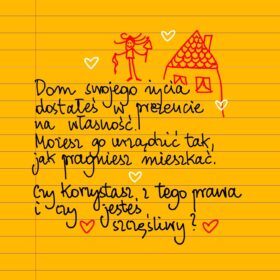 Dom swojego życia
dostałeś w prezencie
na własność.
Możesz go urządzić tak,
jak pragniesz mieszkać.
Czy korzystasz z tego prawa
i czy jesteś
szczęśliwy?